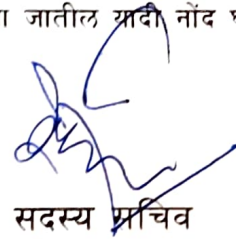 जातील यादी नोंद
सदस्य सचिव